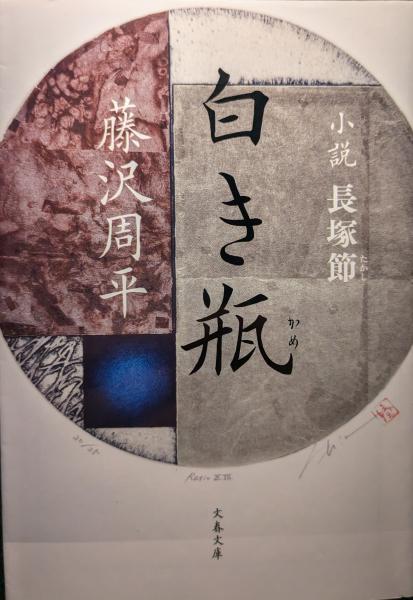 小説 長塚節
たかし
白き瓶
かめ
藤沢周平
Ratio
文春文庫